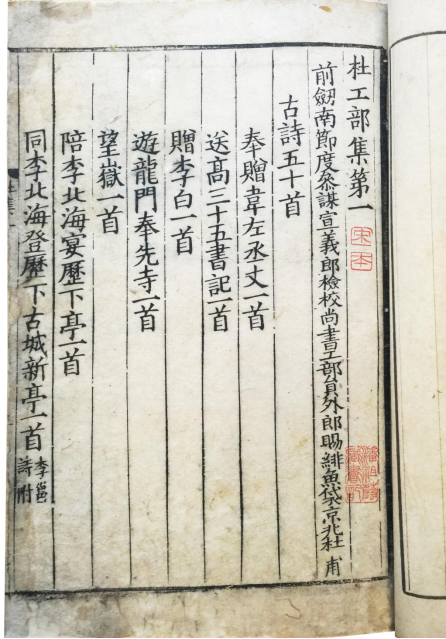 杜工部集第一
宋本
前劒南節度叅謀宣義郎檢校尚書工部員外郎賜緋魚袋京兆杜甫
古詩五十首
奉贈韋左丞丈一首
送高三十五書記一首
贈李白一首
遊龍門奉先寺一首
望嶽一首
陪李北海宴歷下亭一首
同李北海登歷下古城新亭一首 李邕詩附